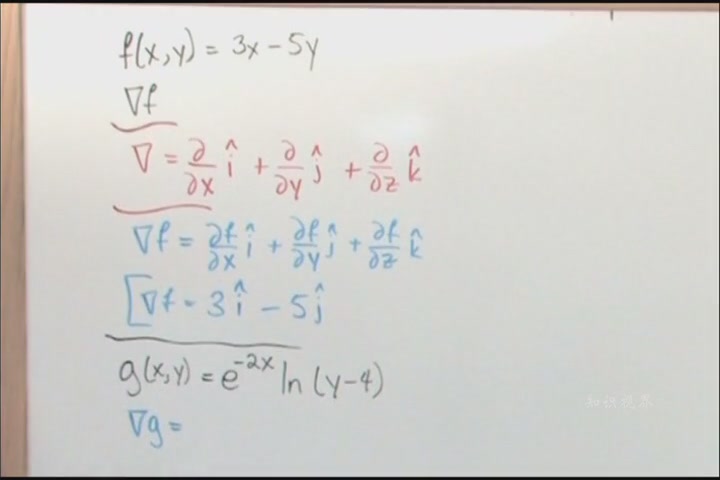 f(x,y) = 3x - 5y
∇f
∇ = ∂/∂x î + ∂/∂y ĵ + ∂/∂z k̂
∇f = ∂f/∂x î + ∂f/∂y ĵ + ∂f/∂z k̂
[∇f = 3î - 5ĵ
g(x,y) = e^{-2x} ln(y-4)
知识视界
∇g =